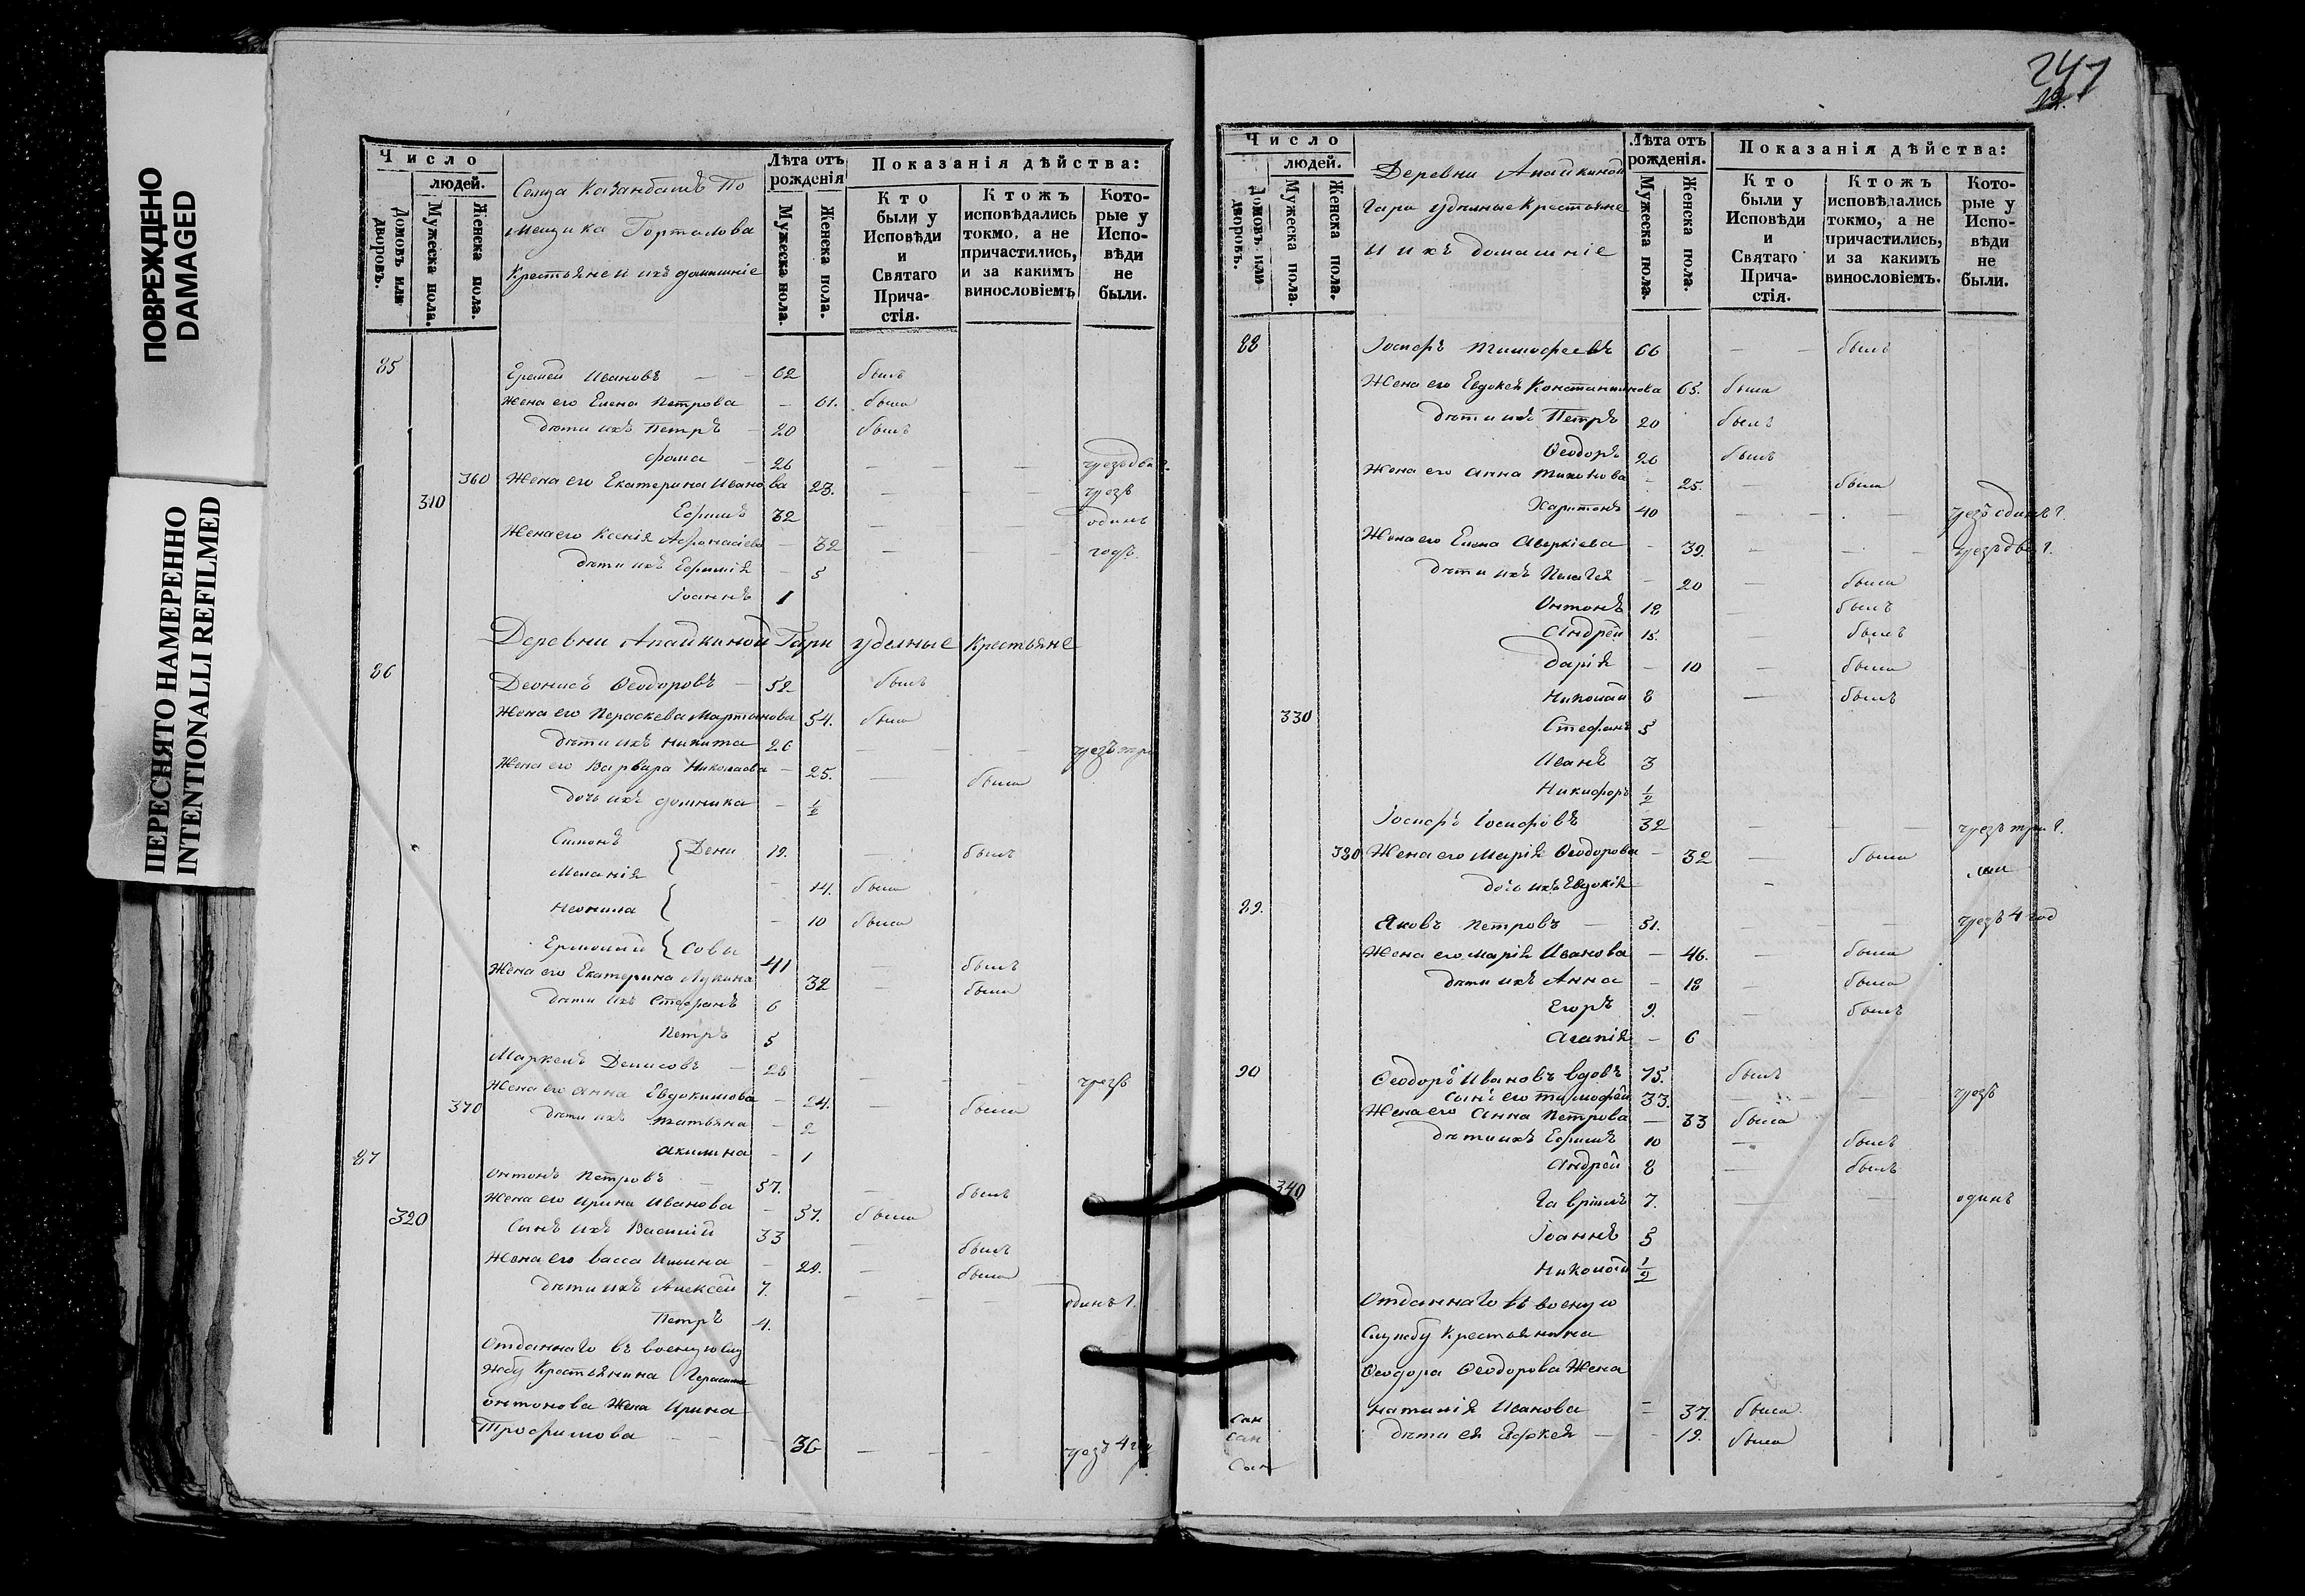 ПОВРЕЖДЕНО
DAMAGED
ПЕРЕСНЯТО НАМЕРЕННО
INTENTIONALLI REFILMED
Число
людей.
Домовъ или дворовъ.
Мужеска пола.
Женска пола.
Сельца Казанбашъ По
мещика Горталова
Крестьяне и ихъ домашніе
Лѣта отъ рожденія
Мужеска пола.
Женска пола.
Показанія дѣйства:
Кто были у Исповѣди и Святаго Прича-стія.
Ктожъ исповѣдались токмо, а не причастились, и за какимъ винословіемъ
Кото-рые у Испо-вѣди не были.
85 Еремей Ивановъ — 62 былъ
Жена его Елена Петрова — 61. была
дѣти ихъ Петръ 20 былъ
Фома 26 — — чрезъ два г.
360 Жена его Екатерина Иванова 23. — — чрезъ
310 Ефимъ 32 — — одинъ
Жена его Ксенія Афонасіева — 32 — — годъ.
дѣти ихъ Ефимія — 5
Іоаннъ 1
Деревни Апайкиной Гари удѣлные Крестьяне
86 Деонисъ Ѳеодоровъ — 52 былъ
Жена его Пераскева Мартынова 54. была
дѣти ихъ Никита 26 — — чрезъ три
Жена его Варвара Николаева — 25. — была
дочь ихъ домника — 1/2
Симонъ { Дени 19. былъ
Меланія { — 14. была
Неонила — 10 была
Ермолай { совы 41 — былъ
Жена его Екатерина Лукина 32 — была
дѣти ихъ Стефанъ 6
Петръ 5
Маркелъ Денисовъ — 28 — — чрезъ
Жена его Анна Евдокимова — 24. — была
370 дѣти ихъ татьяна — 2
акилина — 1
87 Онтонъ Петровъ — 57. — былъ
Жена его Ирина Иванова — 57. была
320 Сынъ ихъ Василій 33 — былъ
Жена его васса Ильина — 29. — была
дѣти ихъ Алексей 7. — — одинъ г.
Петръ 4.
Отданнаго въ военую слу
жбу Крестьянина Герасима
онтонова Жена Ирина
Трофимова — — 36 — — чрезъ 4 го
247
Число
людей.
Домовъ или дворовъ.
Мужеска пола.
Женска пола.
Деревни Апайкиной
Гари удѣлные Крестьяне
и ихъ домашніе
Лѣта отъ рожденія.
Мужеска пола.
Женска пола.
Показанія дѣйства:
Кто были у Исповѣди и Святаго Прича-стія.
Ктожъ исповѣдались токмо, а не причастились, и за какимъ винословіемъ.
Кото-рые у Испо-вѣди не были.
88 Іосифъ Тимофеевъ 66 — — былъ
Жена его Евдокея Константинова 63. была
дѣти ихъ Петръ 20 былъ
Ѳеодоръ 26 былъ
Жена его Анна Тихонова — 25. — была
Харитонъ 40 — — — чрезъ одинъ г.
Жена его Елена Аверкіева — 39. — — чрезъ два г.
дѣти ихъ Пелагея — 20 — была
Онтонъ 18 — былъ
Андрей 15. — былъ
дарія — 10 — была
Николай 8 — былъ
330 Стефанъ 5
Иванъ 3
Никифоръ 1/2
Іосифъ Іосифовъ 32 — — — чрезъ три г.
380 Жена его Марія Ѳеодорова — 32 — была
дочь ихъ Евдокія —
89. Яковъ Петровъ — 51. — — — чрезъ 4 год
Жена его Марія Иванова — 46. — была
дѣти ихъ Анна — 18 — была
Егоръ 9. — былъ
агапія — 6
90 Ѳеодоръ Ивановъ вдовъ 75. былъ
сынъ его тимофей 33. — — — чрезъ
Жена его Анна Петрова — 33 была
дѣти ихъ Ефимъ 10 — былъ
Андрей 8 — былъ
340 Гаврiилъ 7. — — одинъ
Іоаннъ 5
Николай 1/2
Отданнаго въ военую
Службу Крестьянина
Ѳеодора Ѳеодорова Жена
наталія Иванова — 37. была
дѣти ея — 19. была